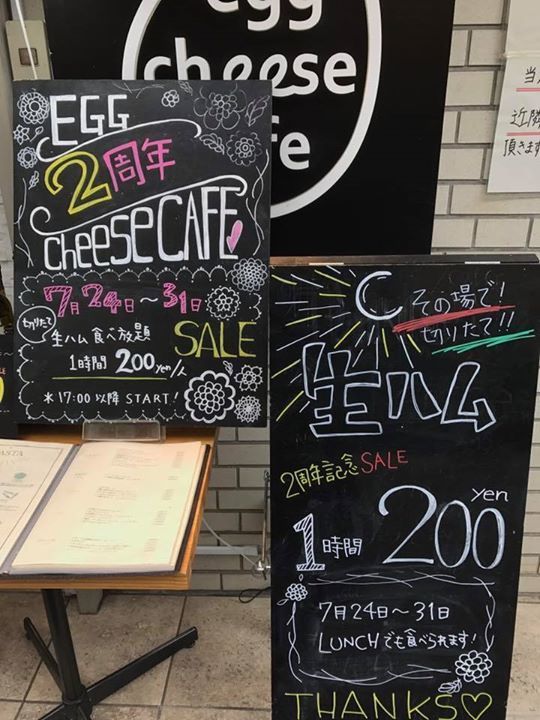 egg
cheese
当
近隣
頂きます
EGG
2周年
cheese CAFE
7月24日〜31日
切りたて
生ハム食べ放題
SALE
1時間 200yen/人
*17:00以降 START!
その場で!
切りたて!!
生ハム
2周年記念 SALE
yen
1時間 200
7月24日〜31日
LUNCHでも食べられます!
THANKS♡